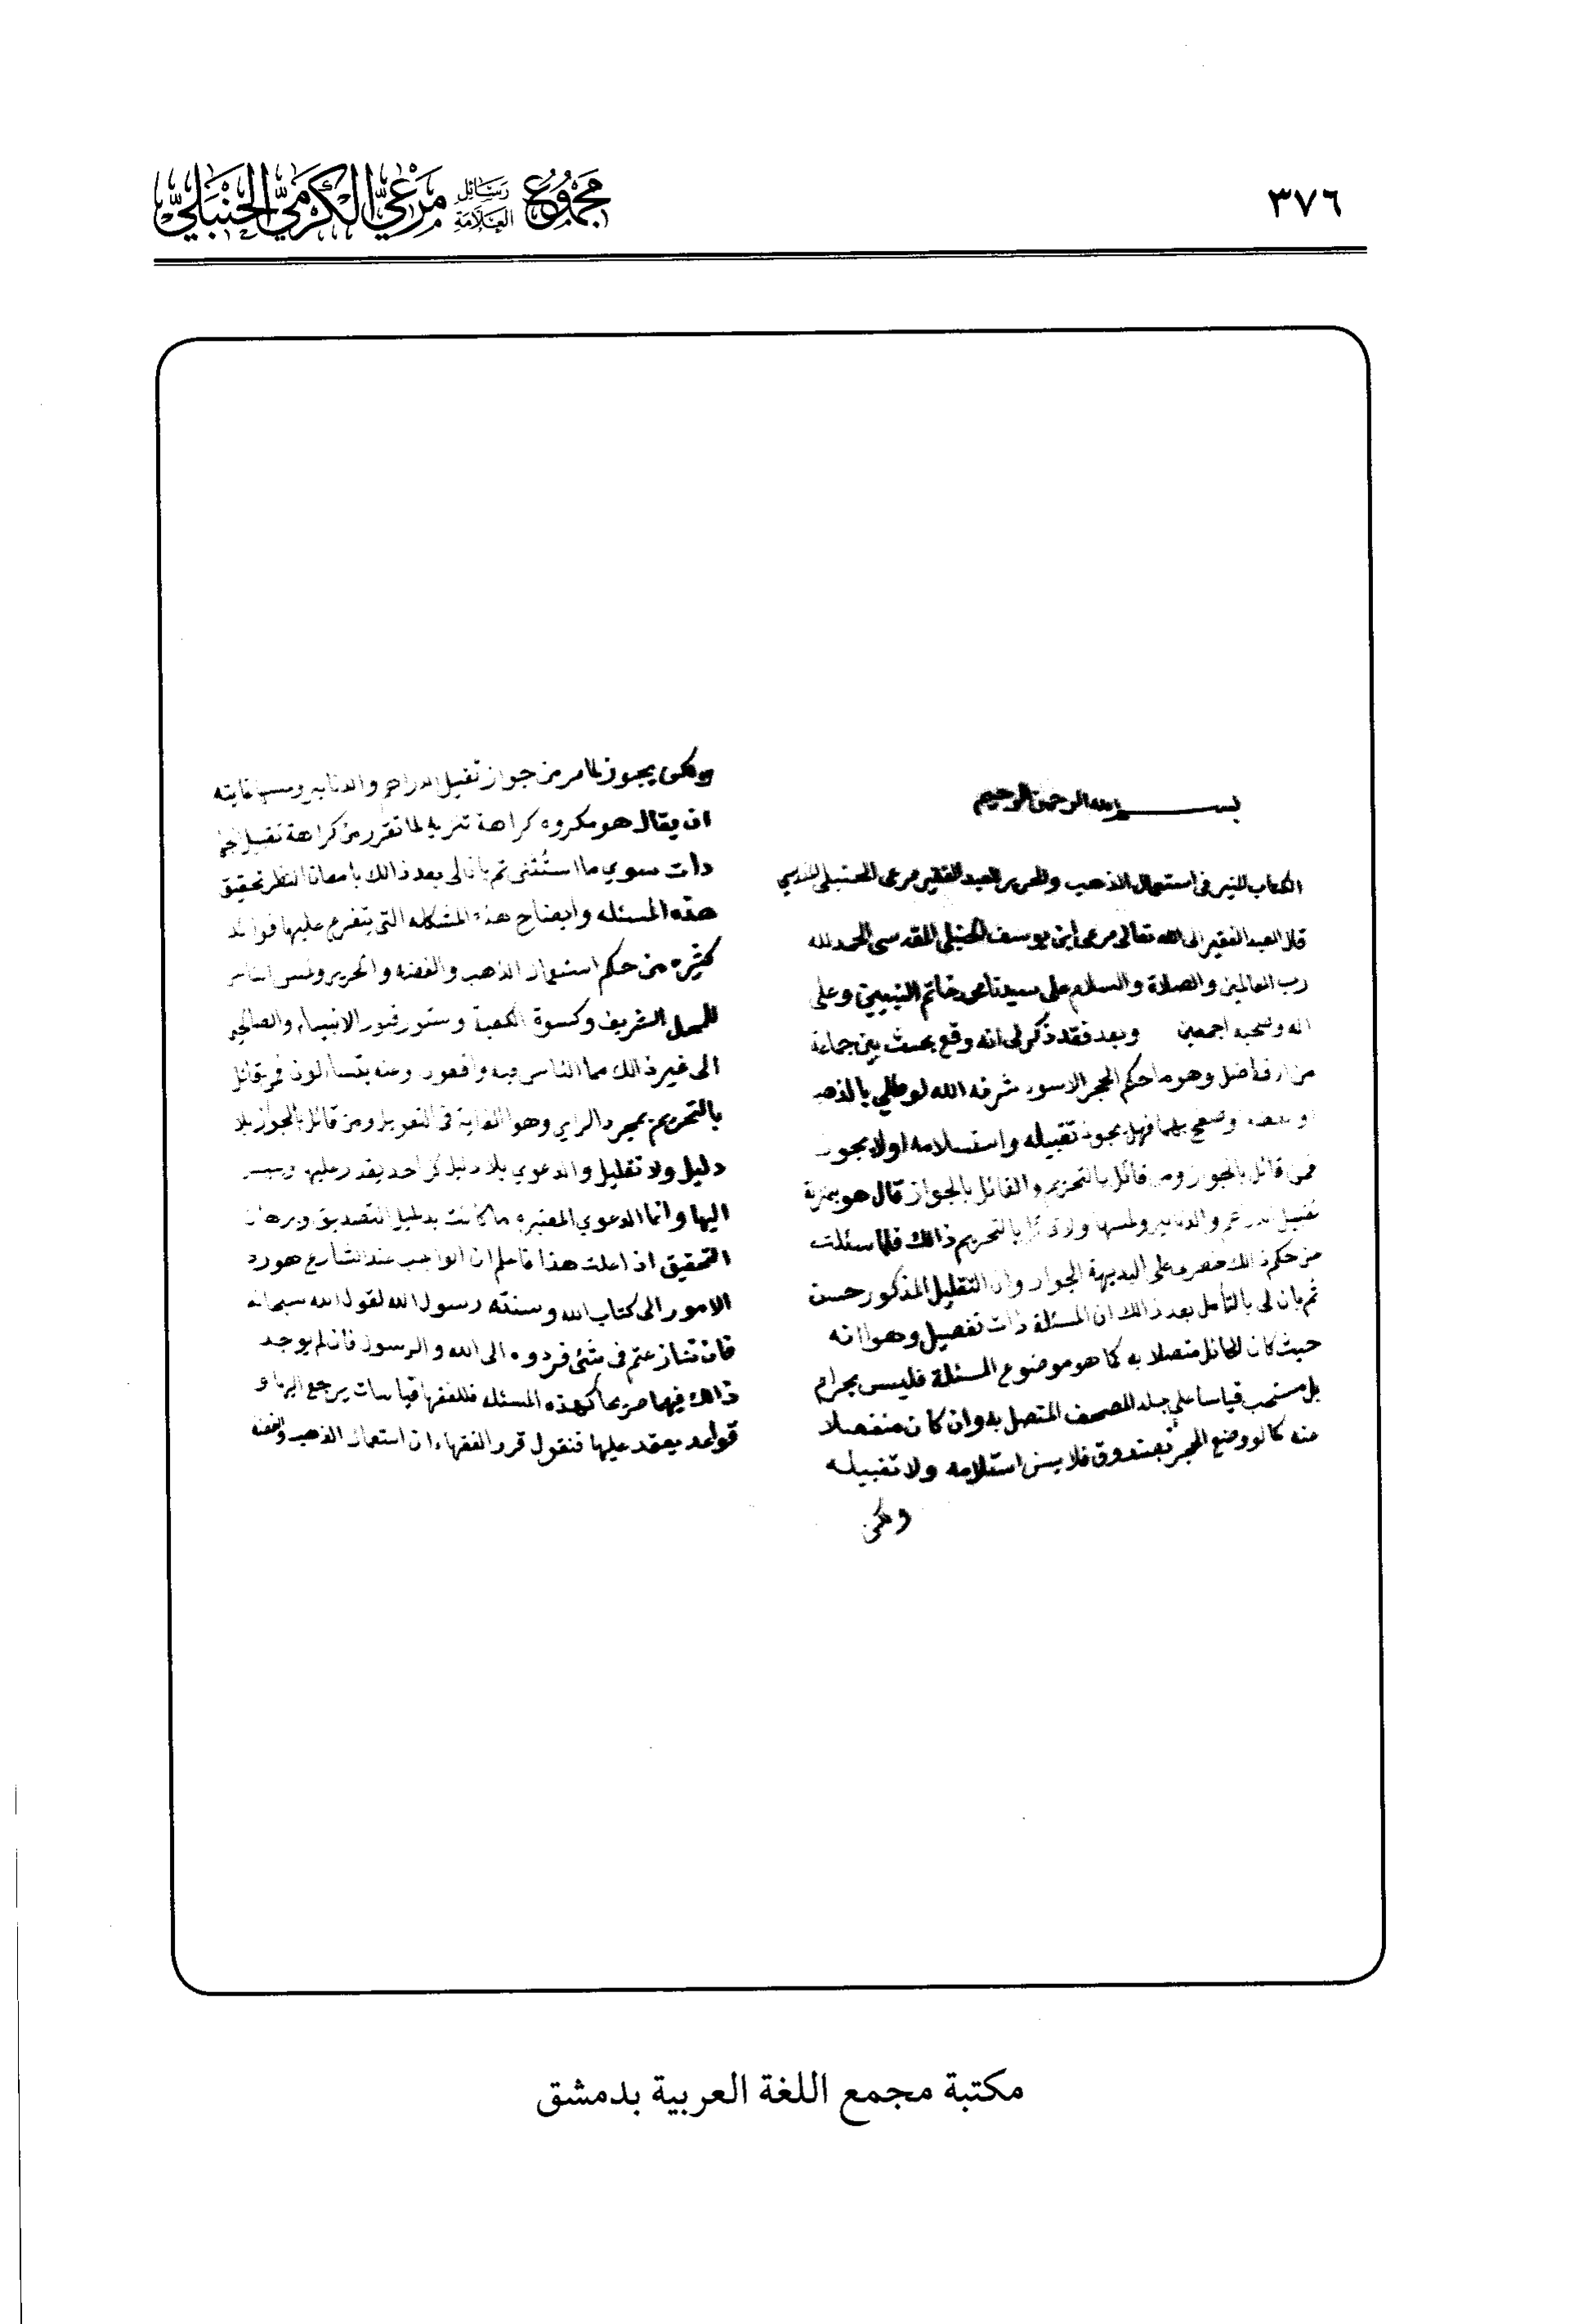 ٣٧٦
مجموع رسائل العلامة مرعي الكرمي الحنبلي
بسم الله الرحمن الرحيم
الكتاب المنير فى استعمال الذهب والحرير للعبد الفقير مرعى الحنبلى المقدسي
قال العبد الفقير الى الله تعالى مرعى ابن يوسف الحنبلى المقدسى الحمد لله
رب العالمين والصلاة والسلام على سيدنا محمد خاتم النبيين وعلى
اله وصحبه اجمعين وبعد فقد ذكر لى انه وقع بحث بين جماعة
من افاضل وهو ما حكم الحجر الاسود شرفه الله لو طلي بالذهب
او بفضة وصفح بهما فهل يجوز تقبيله واستسلامه او لا يجوز
فمن قائل بالجواز ومن قائل بالتحريم والقائل بالجواز قال هو بمنزلة
تقبيل الدراهم والدنانير ولمسها بالتحريم ذالك فلما سئلت
من حكم ذالك على البديهة الجواز وان التقليل المذكور حسن
ثم بان لى بالتأمل بعد ذالك ان المسئلة ذات تفصيل وهو انه
حيث كان الحائل متصلا به كما هو موضوع المسئلة فليس بحرام
بل مستحب قياسا على جلد المصحف المتصل به وان كان منفصلا
منه كما لو وضع الحجر بصندوق فلا يسن استلامه ولا تقبيله
ولكن
ولكن يجوز لما مر من جواز تقبيل الدراهم والدنانير ومسها غايته
ان يقال هو مكروه كراهة تنزيه لما تقرر من كراهة تقبيل الجما
دات سوي ما استُثنى ثم بان لى بعد ذالك بامعان النظر تحقيق
هذه المسئله وايضاح هذه المشكله التى يتفرع عليها فوائد
كثيره من حكم استعمال الذهب والفضه والحرير ولمس الناس
للمحمل الشريف وكسوة الكعبة وستور قبور الانبياء والصالحين
الى غير ذالك مما الناس فيه واقعون وعنه يتسائلون فمن قائل
بالتحريم بمجرد الراي وهو الغاية فى التهويل ومن قائل بالجواز بلا
دليل ولا تقليل والدعوي بلا دليل كل احد يقدر عليها ويسير
اليها وانما الدعوي المعتبره ما كانت بدليل التصديق وبرهان
التحقيق اذا علمت هذا فاعلم ان الواجب عند الشارع هو رد
الامور الى كتاب الله وسنته رسول الله لقول الله سبحانه
فان تنازعتم فى شئ فردوه الى الله والرسول فان لم يوجد
ذالك فيهما صريحا كهذه المسئله فللفقها قياسات يرجع اليها و
قواعد يعقد عليها فنقول قرر الفقهاء ان استعمال الذهب والفضه
مكتبة مجمع اللغة العربية بدمشق